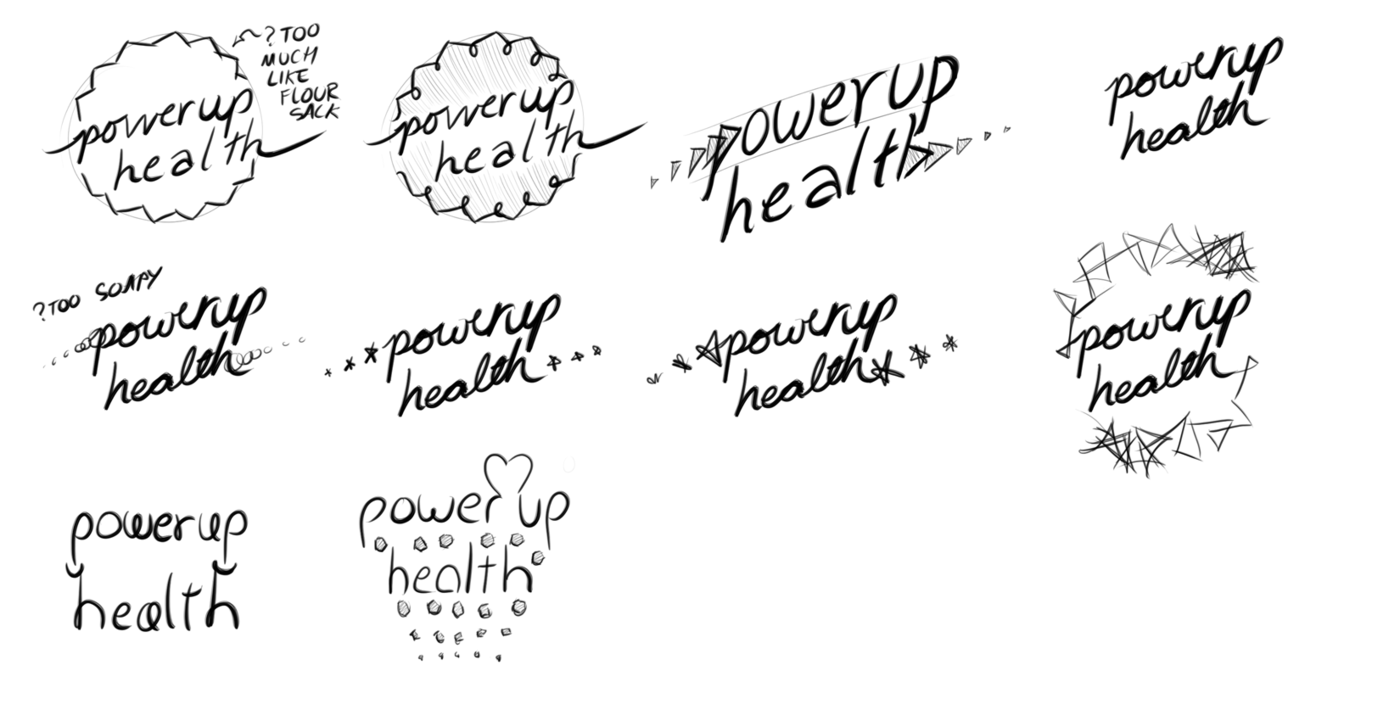 ? TOO
MUCH
LIKE
FLOUR
SACK
powerup
health
powerup
health
powerup
health
powerup
health
? TOO SOAPY
powerup
health
powerup
health
powerup
health
powerup
health
powerup
health
power up
health